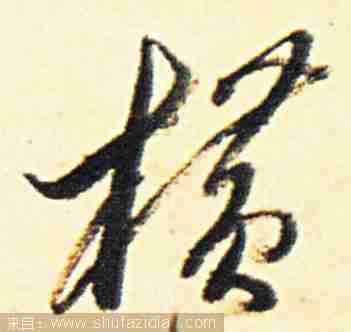 横
来自：www.shufazidian.com